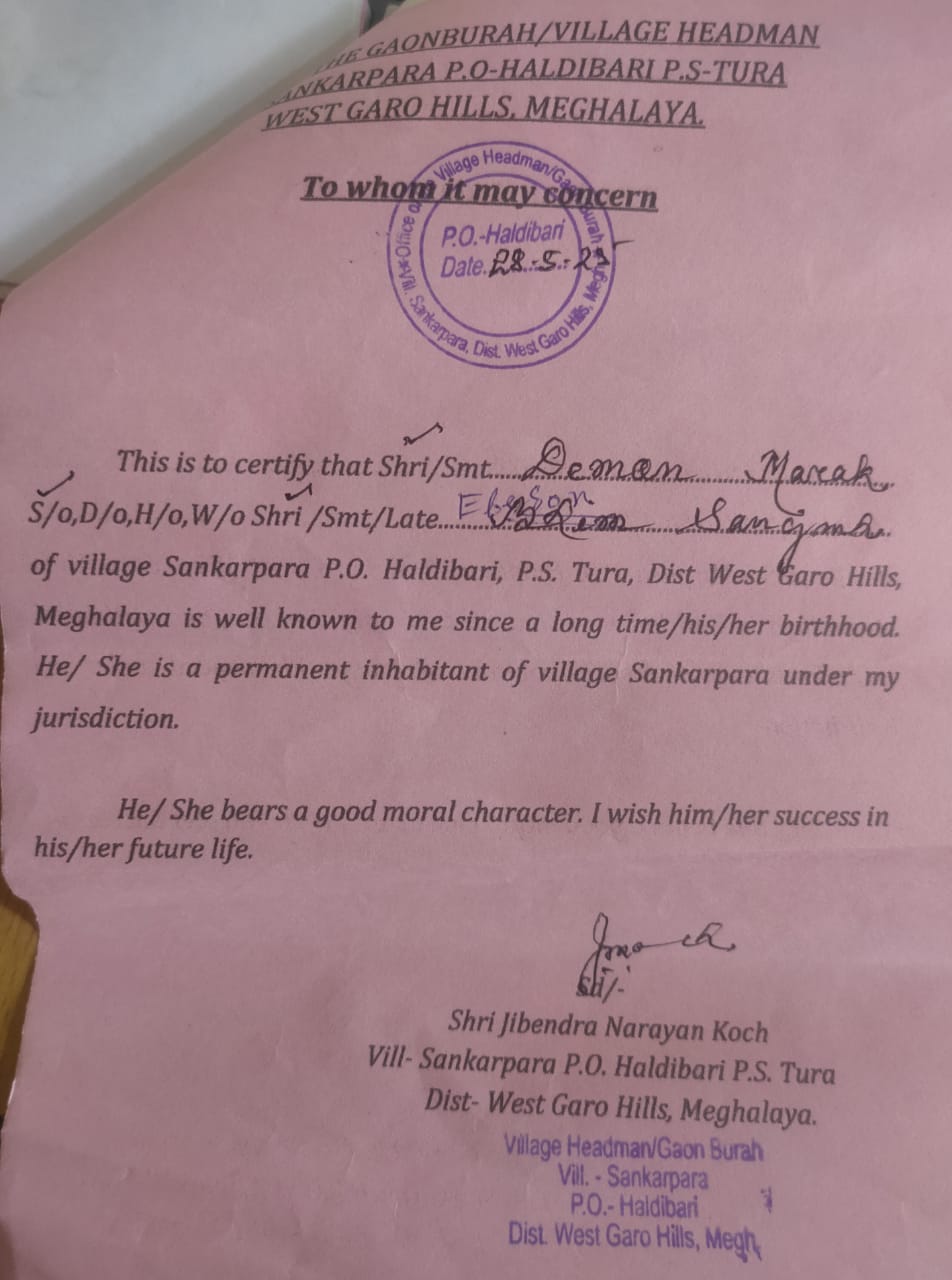 THE GAONBURAH/VILLAGE HEADMAN
SANKARPARA P.O-HALDIBARI P.S-TURA
WEST GARO HILLS, MEGHALAYA.
To whom it may concern
Office of Village Headman/Gaon Burah
P.O.-Haldibari
Date.28-5-25
Vill. Sankarpara, Dist. West Garo Hills, Megh
This is to certify that Shri/Smt.....Deman.......Marak
S/o,D/o,H/o,W/o Shri /Smt/Late.... Sangma
of village Sankarpara P.O. Haldibari, P.S. Tura, Dist West Garo Hills,
Meghalaya is well known to me since a long time/his/her birthhood.
He/ She is a permanent inhabitant of village Sankarpara under my
jurisdiction.
He/ She bears a good moral character. I wish him/her success in
his/her future life.
Sd/-
Shri Jibendra Narayan Koch
Vill- Sankarpara P.O. Haldibari P.S. Tura
Dist- West Garo Hills, Meghalaya.
Village Headman/Gaon Burah
Vill. - Sankarpara
P.O.- Haldibari
Dist. West Garo Hills, Megh,